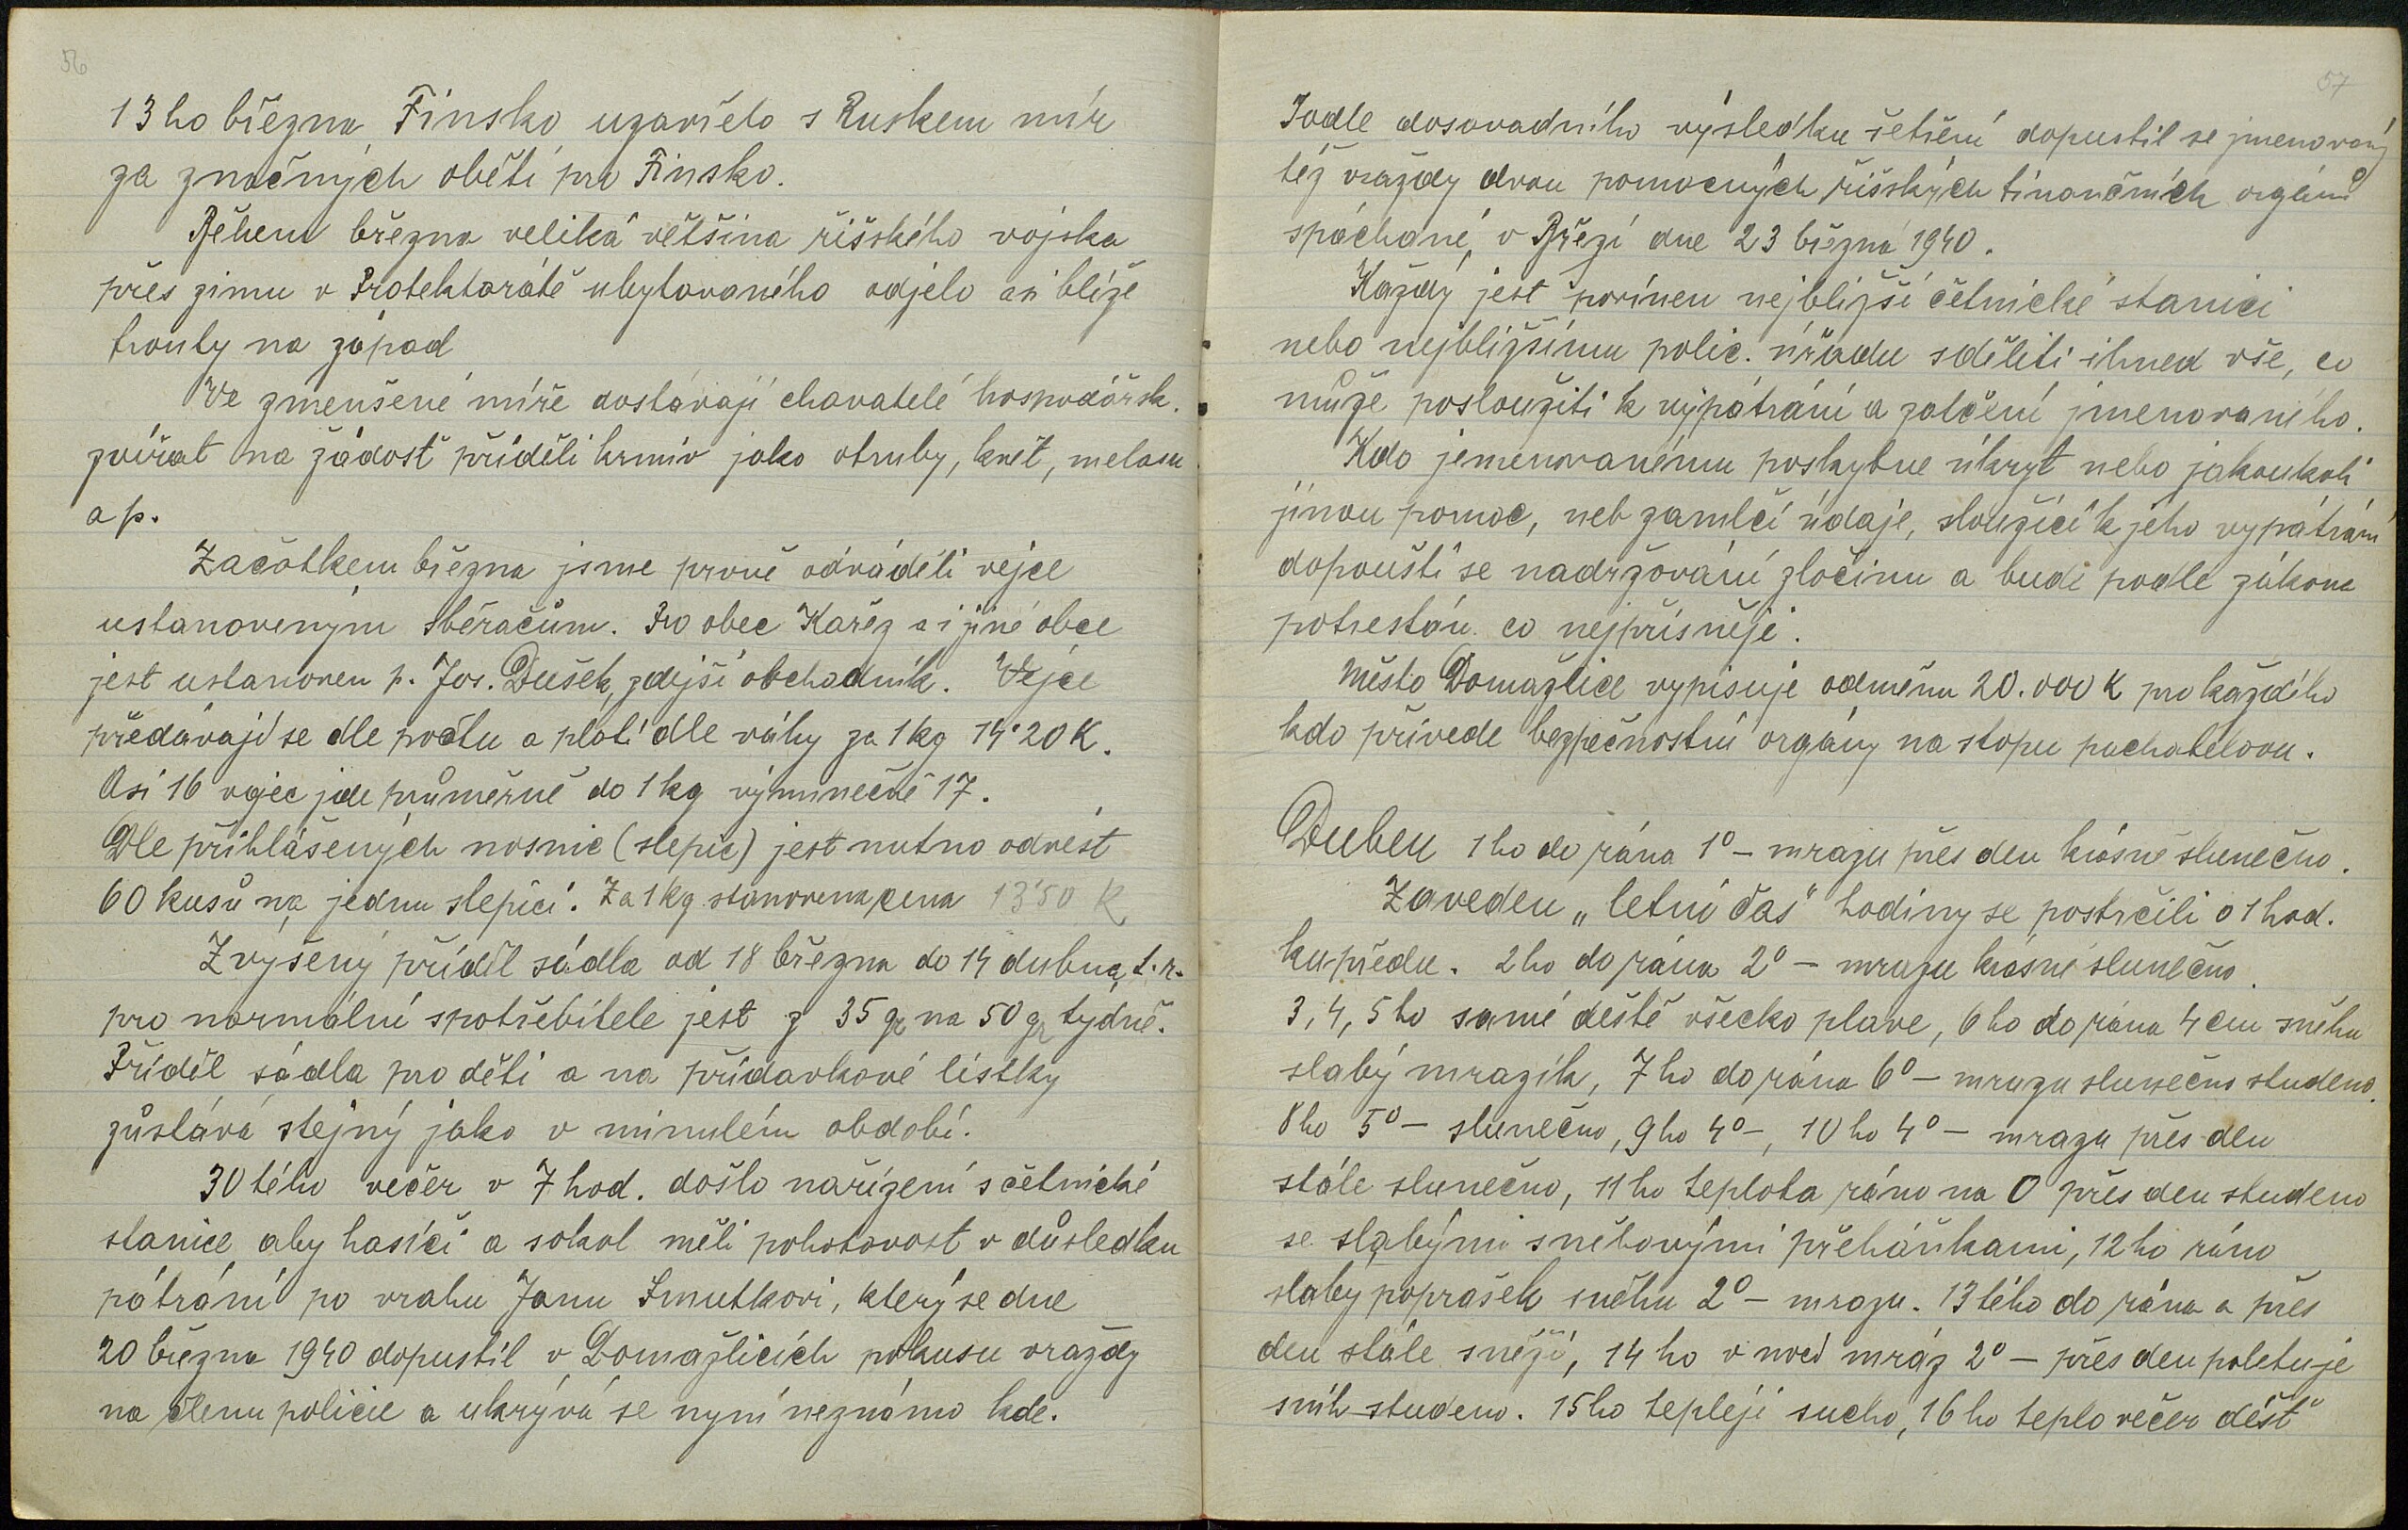 56
13ho března Finsko uzavřelo s Ruskem mír
za značných obětí pro Finsko.
Během března veliká většina říšského vojska
přes zimu v Protektorátě ubytovaného odjelo asi blíže
fronty na západ
Ve zmenšené míře dostávají chovatelé hospodářsk.
zvířat na žádosť příděli krmiv jako otruby, květ, melasu
a p.
Začátkem března jsme prvně odváděli vejce
ustanoveným sběračům. Pro obec Kařez a i jiné obce
jest ustanoven p. Jos. Dušek, zdejší obchodník. Vejce
předávají se dle počtu a platí dle váhy za 1 kg 14·20 K.
Asi 16 vajec jde průměrně do 1 kg výminečně 17.
Dle přihlášených nosnic (slepic) jest nutno odvést
60 kusů na jednu slepici. Za 1 kg stanovena cena 13'50 K
Zvýšený příděl sádla od 18 března do 14 dubna t. r.
pro normální spotřebitele jest z 35 gr na 50 gr týdně.
Příděl sádla pro děti a na přídavkové lístky
zůstává stejný jako v minulém období.
30tého večer v 7 hod. došlo nařízení s četnické
stanice aby hasiči a sokol měli pohotovost v důsledku
pátrání po vrahu Janu Smutkovi, který se dne
20 března 1940 dopustil v Domažlicích pokusu vraždy
na členu policie a ukrývá se nyní neznámo kde.
57
Podle dosavadního výsledku šetření dopustil se jmenovaný
též vraždy dvou pomocných říšských finančních orgánů
spáchané v Březí dne 23 března 1940.
Každý jest povinen nejbližší četnické stanici
nebo nejbližšímu polic. úřadu sděliti ihned vše, co
může posloužiti k vypátrání a zatčení jmenovaného.
Kdo jemenovanému poskytne úkryt nebo jakoukoli
jinou pomoc, neb zamlčí údaje, sloužící k jeho vypátrání
dopouští se nadržování zločinu a bude podle zákona
potrestán co nejpřísněji.
Město Domažlice vypisuje odměnu 20.000 K pro každého
kdo přivede bezpečnostní orgány na stopu pachatelovu.
Duben 1ho do rána 1° – mrazu přes den krásně slunečno.
Zaveden „letní čas" hodiny se postrčili o 1 hod.
ku předu. 2ho do rána 2° – mrazu krásně slunečno.
3, 4, 5ho samé deště všecko plave, 6ho do rána 4 cm sněhu
slabý mrazík, 7ho do rána 6° – mrazu slunečno studeno.
8ho 5° – slunečno, 9ho 4° –, 10ho 4° – mrazu přes den
stále slunečno, 11ho teplota ráno na 0 přes den studeno
se slabými sněhovými přeháňkami, 12ho ráno
slabý poprašek sněhu 2° – mrazu. 13tého do rána a přes
den stále sněží, 14ho v noci mráz 2° – přes den poletuje
sníh studeno. 15ho tepleji sucho, 16ho teplo večer déšť